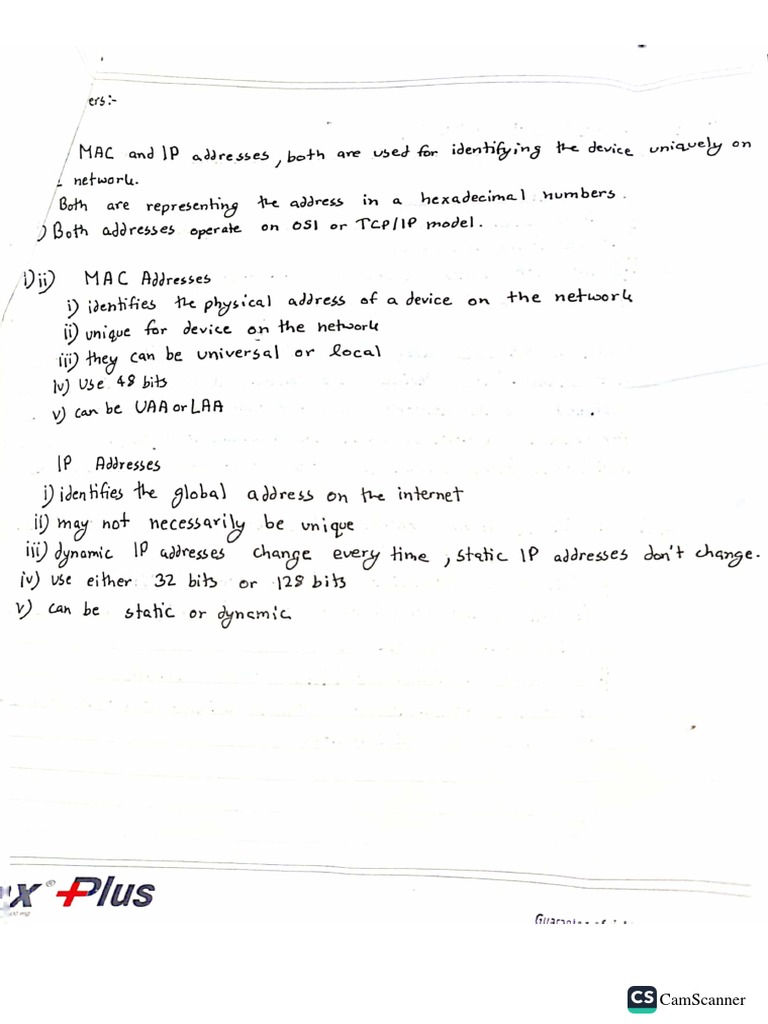 ers:-
MAC and IP addresses, both are used for identifying the device uniquely on
network.
Both are representing the address in a hexadecimal numbers.
) Both addresses operate on OSI or TCP/IP model.
1) ii) MAC Addresses
i) identifies the physical address of a device on the network
ii) unique for device on the network
iii) they can be universal or local
iv) Use 48 bits
v) can be UAA or LAA
IP Addresses
i) identifies the global address on the internet
ii) may not necessarily be unique
iii) dynamic IP addresses change every time, static IP addresses don't change.
iv) use either 32 bits or 128 bits
v) can be static or dynamic
x® Plus
CS CamScanner